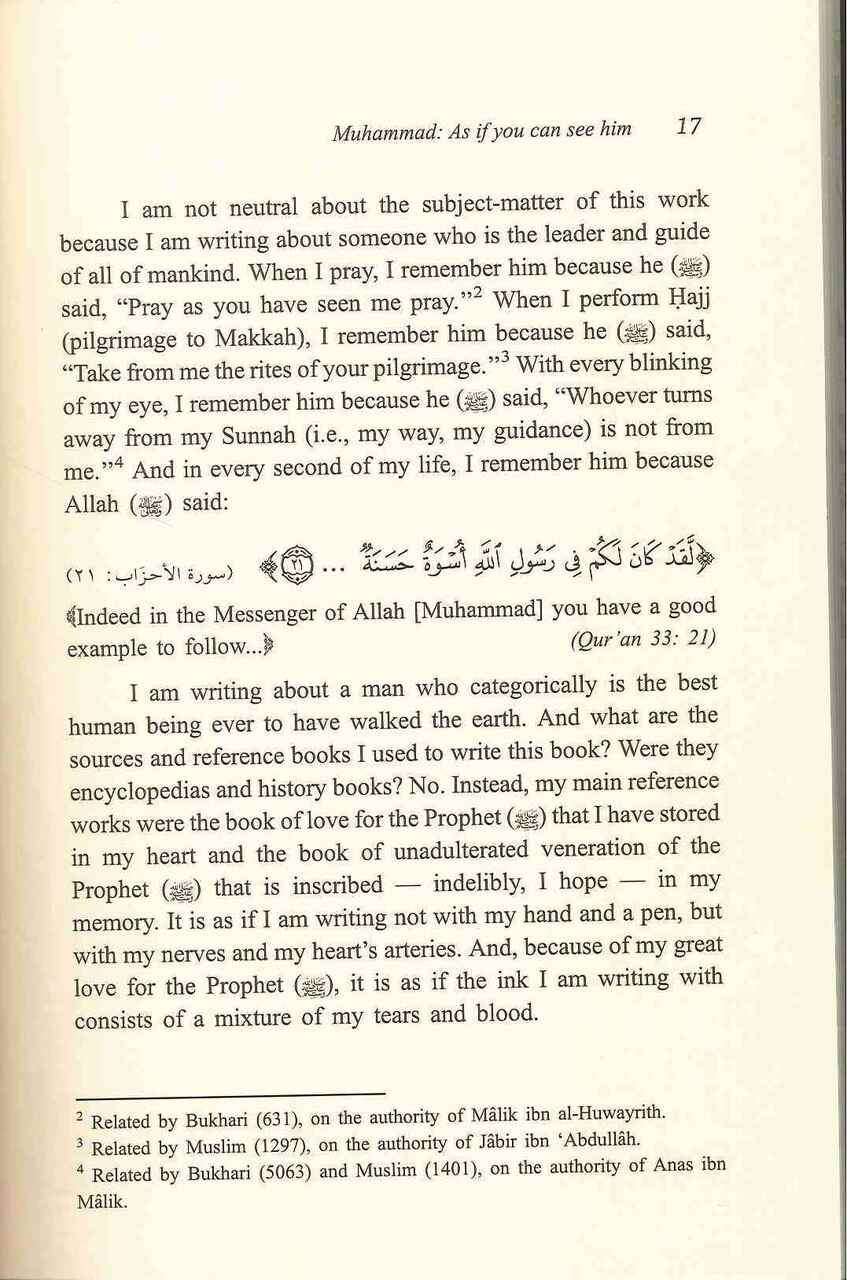 Muhammad: As if you can see him 17
I am not neutral about the subject-matter of this work
because I am writing about someone who is the leader and guide
of all of mankind. When I pray, I remember him because he (ﷺ)
said, “Pray as you have seen me pray.”² When I perform Ḥajj
(pilgrimage to Makkah), I remember him because he (ﷺ) said,
“Take from me the rites of your pilgrimage.”³ With every blinking
of my eye, I remember him because he (ﷺ) said, “Whoever turns
away from my Sunnah (i.e., my way, my guidance) is not from
me.”⁴ And in every second of my life, I remember him because
Allah (ﷻ) said:
﴿لَّقَدْ كَانَ لَكُمْ فِى رَسُولِ ٱللَّهِ أُسْوَةٌ حَسَنَةٌ ... ٢١﴾ (سورة الأحزَاب: ٢١)
﴾Indeed in the Messenger of Allah [Muhammad] you have a good
example to follow...﴿ (Qur’an 33: 21)
I am writing about a man who categorically is the best
human being ever to have walked the earth. And what are the
sources and reference books I used to write this book? Were they
encyclopedias and history books? No. Instead, my main reference
works were the book of love for the Prophet (ﷺ) that I have stored
in my heart and the book of unadulterated veneration of the
Prophet (ﷺ) that is inscribed — indelibly, I hope — in my
memory. It is as if I am writing not with my hand and a pen, but
with my nerves and my heart’s arteries. And, because of my great
love for the Prophet (ﷺ), it is as if the ink I am writing with
consists of a mixture of my tears and blood.
² Related by Bukhari (631), on the authority of Mâlik ibn al-Huwayrith.
³ Related by Muslim (1297), on the authority of Jâbir ibn ‘Abdullâh.
⁴ Related by Bukhari (5063) and Muslim (1401), on the authority of Anas ibn
Mâlik.